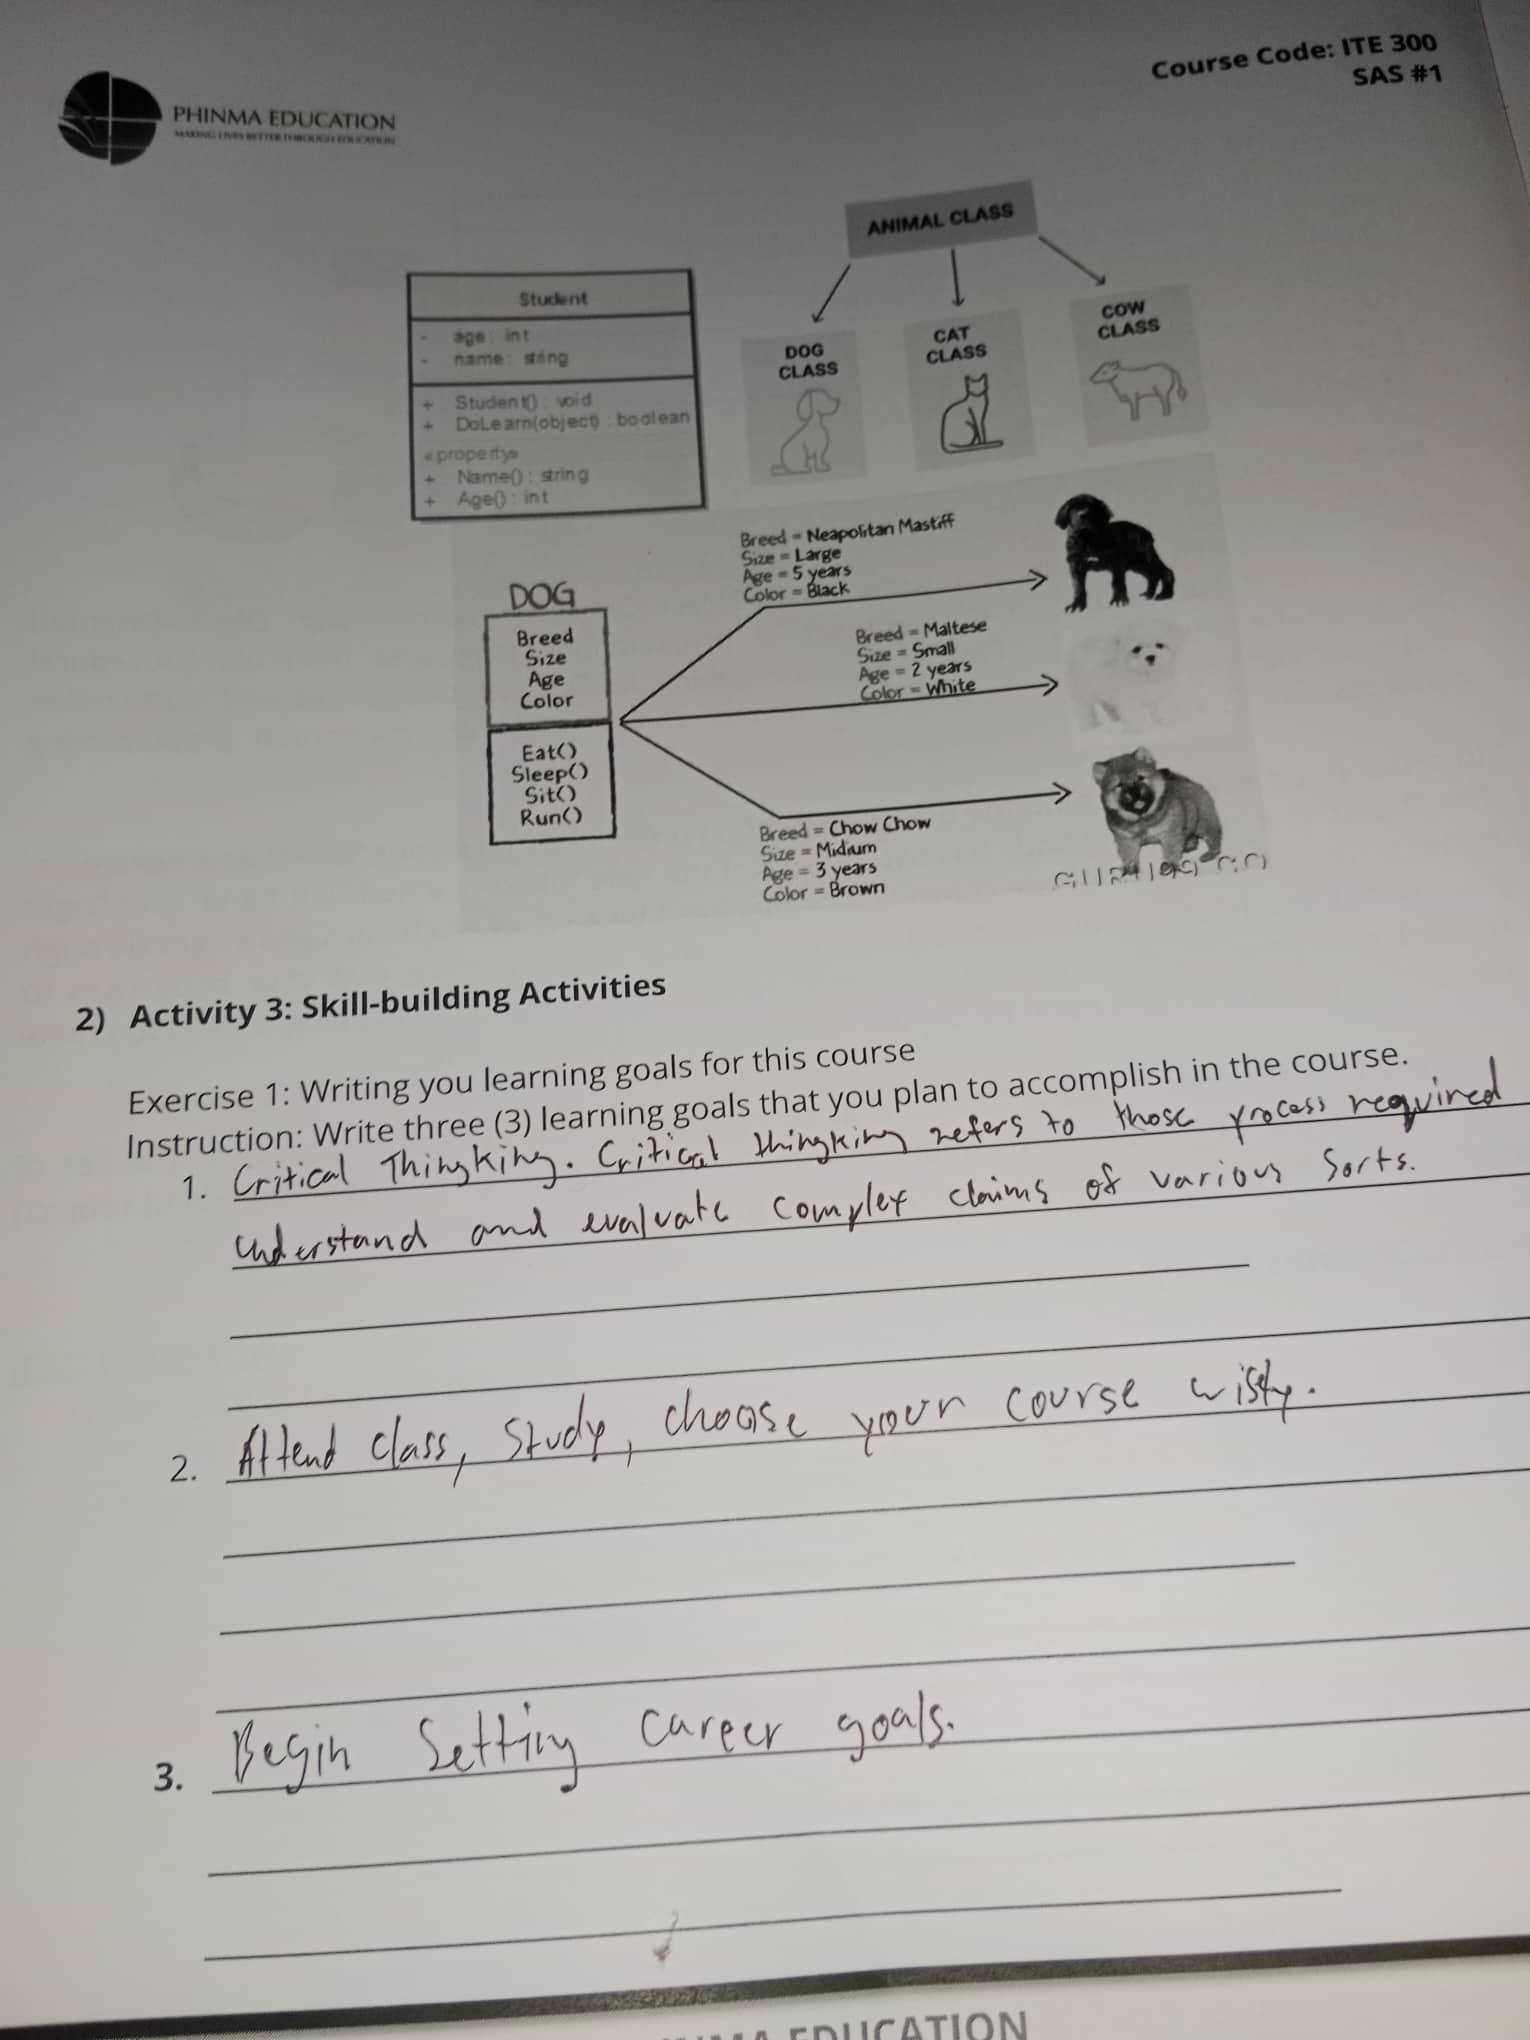 Course Code: ITE 300
SAS #1
PHINMA EDUCATION
MAKING LIVES BETTER THROUGH EDUCATION
ANIMAL CLASS
DOG
CLASS
CAT
CLASS
COW
CLASS
Student
- age : int
- name : string
+ Student() : void
+ DoLearn(object) : boolean
«property»
+ Name() : string
+ Age() : int
DOG
Breed
Size
Age
Color
Eat()
Sleep()
Sit()
Run()
Breed = Neapolitan Mastiff
Size = Large
Age = 5 years
Color = Black
Breed = Maltese
Size = Small
Age = 2 years
Color = White
Breed = Chow Chow
Size = Midium
Age = 3 years
Color = Brown
2) Activity 3: Skill-building Activities
Exercise 1: Writing you learning goals for this course
Instruction: Write three (3) learning goals that you plan to accomplish in the course.
1. Critical Thingking. Critical thingking refers to those process required
understand and evaluate complex claims of various sorts.
2. Attend class, Study, choose your course
3. Begin Setting career goals.
EDUCATION